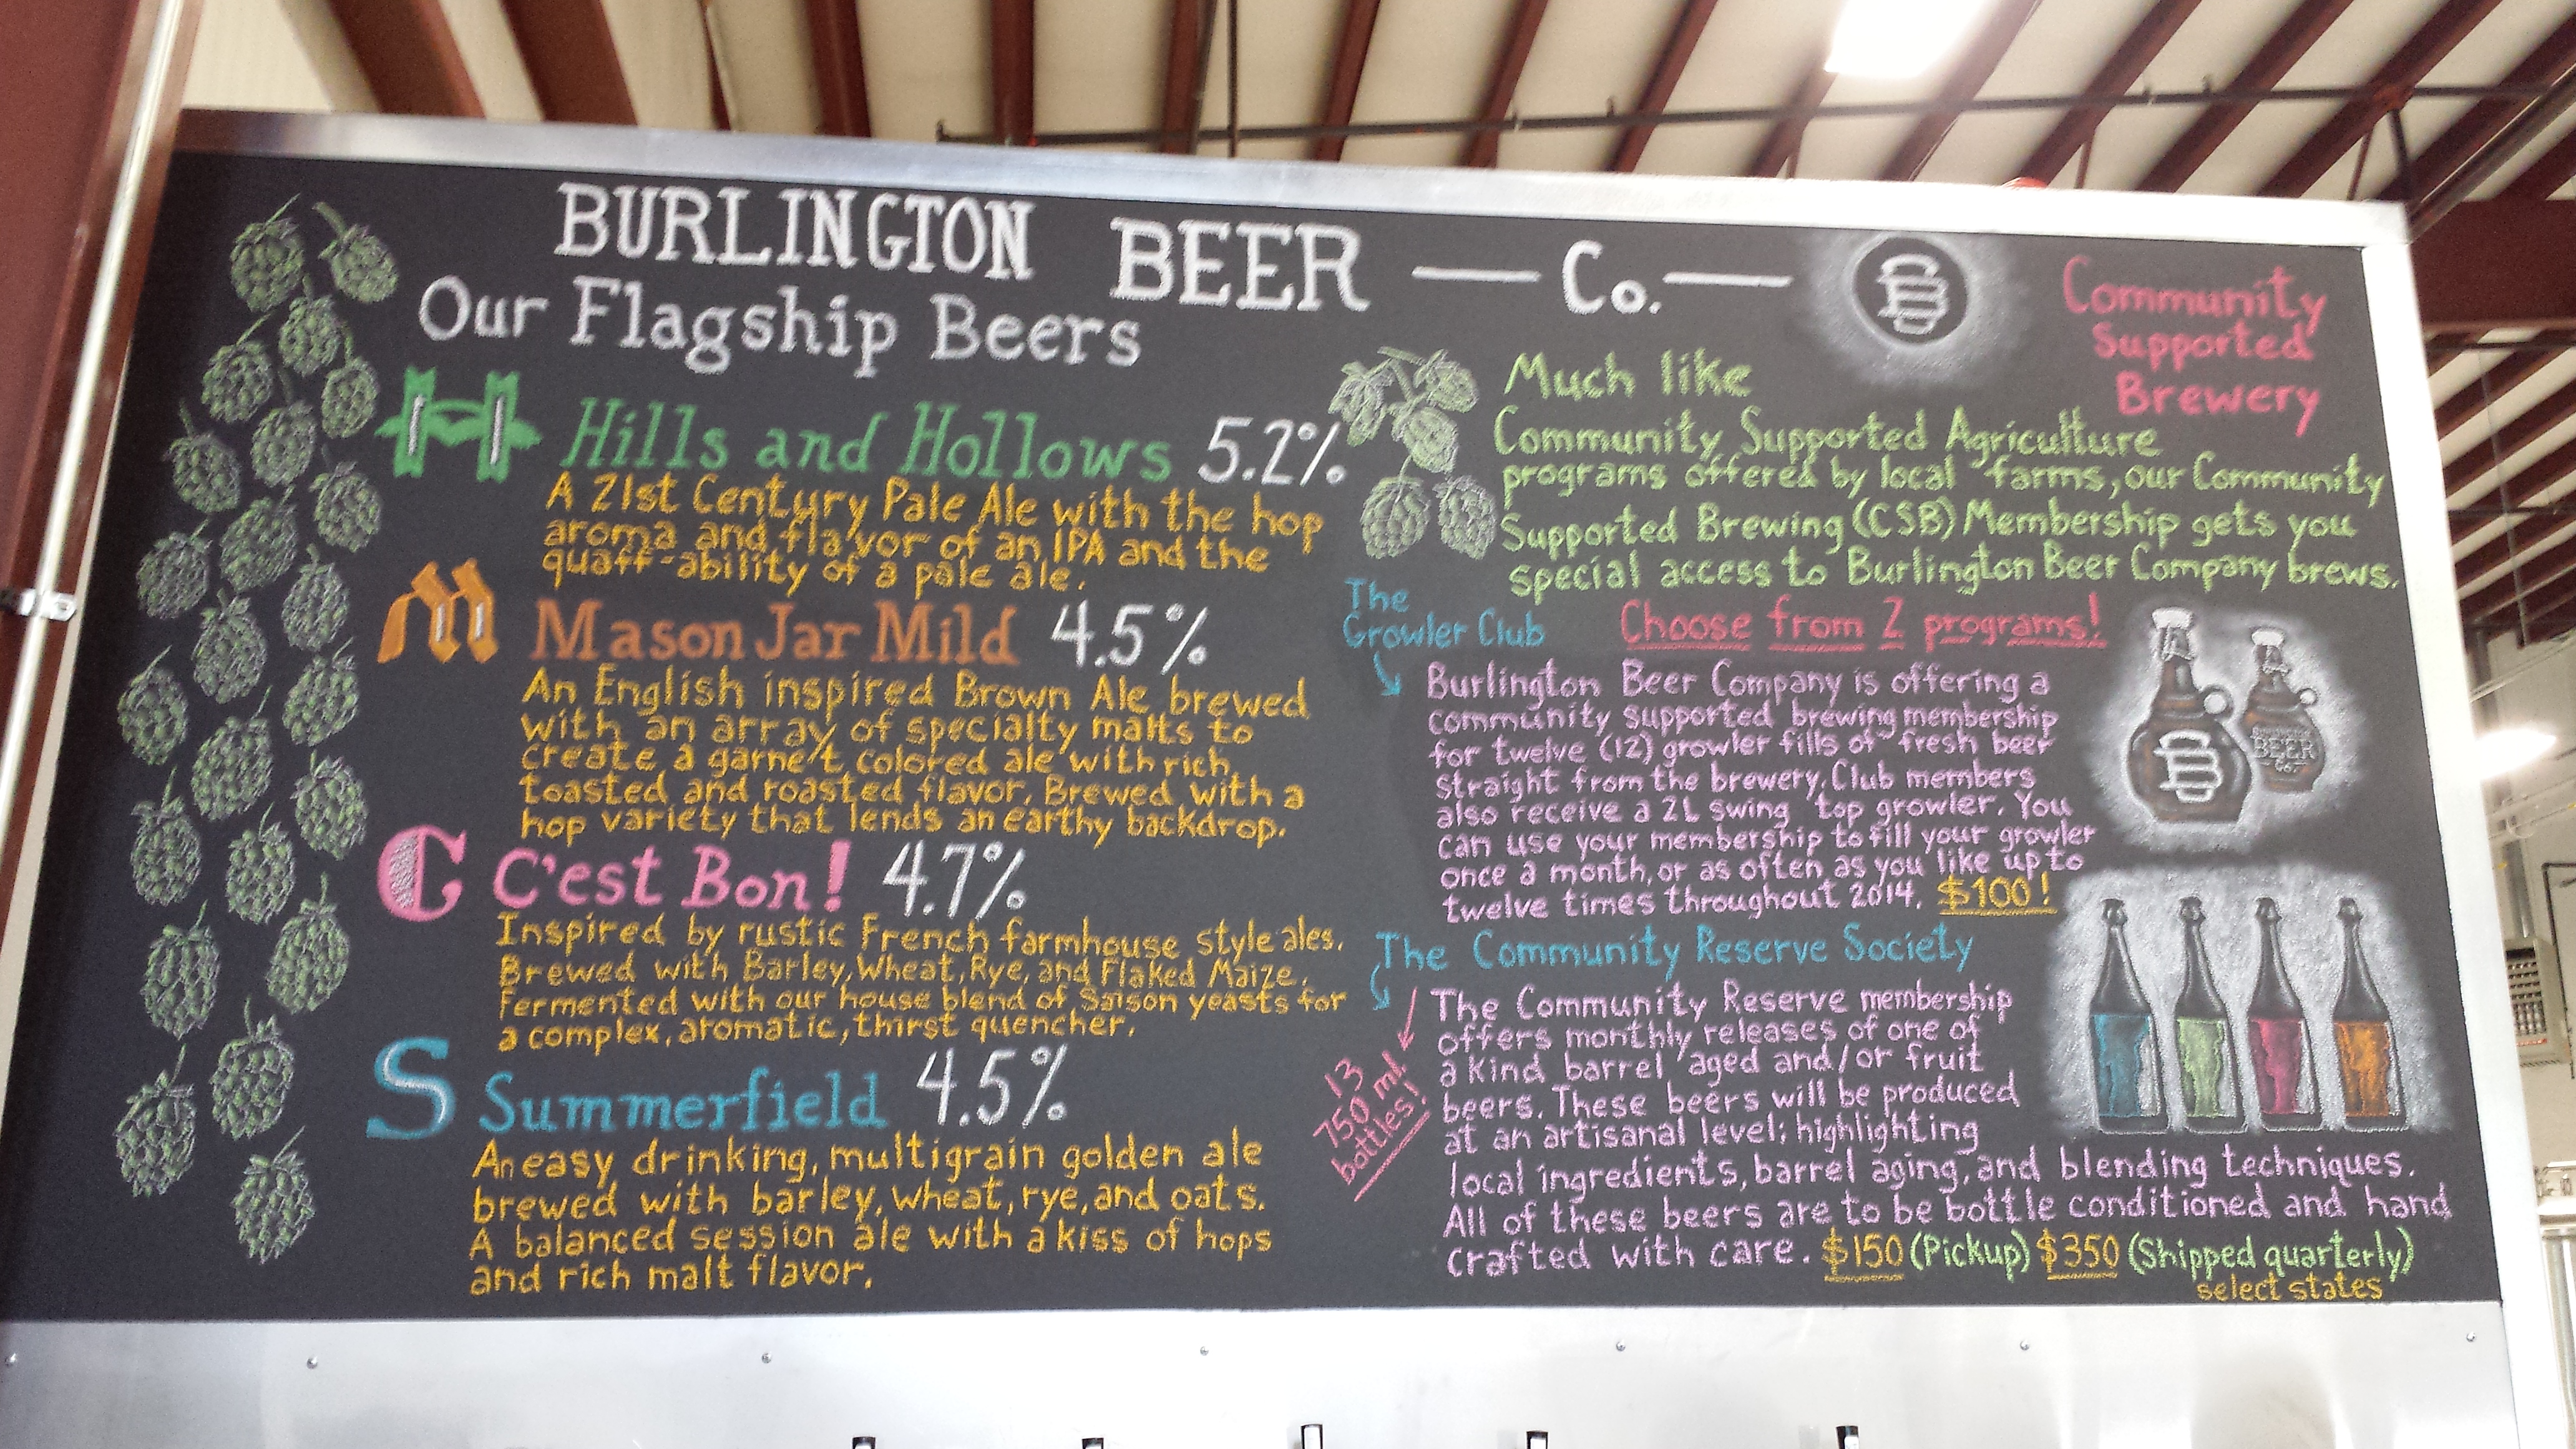 BURLINGTON BEER — Co. —
Our Flagship Beers
H Hills and Hollows 5.2%
A 21st Century Pale Ale with the hop
aroma and flavor of an IPA and the
quaff-ability of a pale ale.
M Mason Jar Mild 4.5%
An English inspired Brown Ale brewed
with an array of specialty malts to
create a garnet colored ale with rich
toasted and roasted flavor. Brewed with a
hop variety that lends an earthy backdrop.
C C'est Bon! 4.7%
Inspired by rustic French farmhouse style ales.
Brewed with Barley, Wheat, Rye, and Flaked Maize.
Fermented with our house blend of Saison yeasts for
a complex, aromatic, thirst quencher.
S Summerfield 4.5%
An easy drinking, multigrain golden ale
brewed with barley, wheat, rye, and oats.
A balanced session ale with a kiss of hops
and rich malt flavor.
B
Community
Supported
Brewery
Much like
Community Supported Agriculture
programs offered by local farms, our Community
Supported Brewing (CSB) Membership gets you
special access to Burlington Beer Company brews.
Choose from 2 programs!
The
Growler Club
Burlington Beer Company is offering a
community supported brewing membership
for twelve (12) growler fills of fresh beer
straight from the brewery. Club members
also receive a 2L swing top growler. You
can use your membership to fill your growler
once a month, or as often as you like up to
twelve times throughout 2014. $100!
B
BEER
Co.
The Community Reserve Society
13
750 ml.
bottles!
The Community Reserve membership
offers monthly releases of one of
a kind barrel aged and/or fruit
beers. These beers will be produced
at an artisanal level; highlighting
local ingredients, barrel aging, and blending techniques.
All of these beers are to be bottle conditioned and hand
crafted with care. $150 (Pickup) $350 (Shipped quarterly)
select states